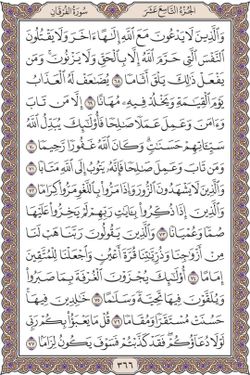 الجزء التاسع عشر سورة الفرقان
والذين لا يدعون مع الله إلها ءاخر ولا يقتلون
النفس التي حرم الله إلا بالحق ولا يزنون ومن
يفعل ذلك يلق أثاما ٦٨ يضعف له العذاب
يوم القيمة ويخلد فيه مهانا ٦٩ إلا من تاب
وءامن وعمل عملا صلحا فأولئك يبدل الله
سيئاتهم حسنت وكان الله غفورا رحيما ٧٠
ومن تاب وعمل صلحا فإنه يتوب إلى الله متابا ٧١
والذين لا يشهدون الزور وإذا مروا باللغو مروا كراما ٧٢
والذين إذا ذكروا بءايت ربهم لم يخروا عليها
صما وعميانا ٧٣ والذين يقولون ربنا هب لنا
من أزوجنا وذريتنا قرة أعين واجعلنا للمتقين
إماما ٧٤ أولئك يجزون الغرفة بما صبروا
ويلقون فيها تحية وسلما ٧٥ خلدين فيها
حسنت مستقرا ومقاما ٧٦ قل ما يعبؤا بكم ربي
لولا دعاؤكم فقد كذبتم فسوف يكون لزاما ٧٧
٣٦٦